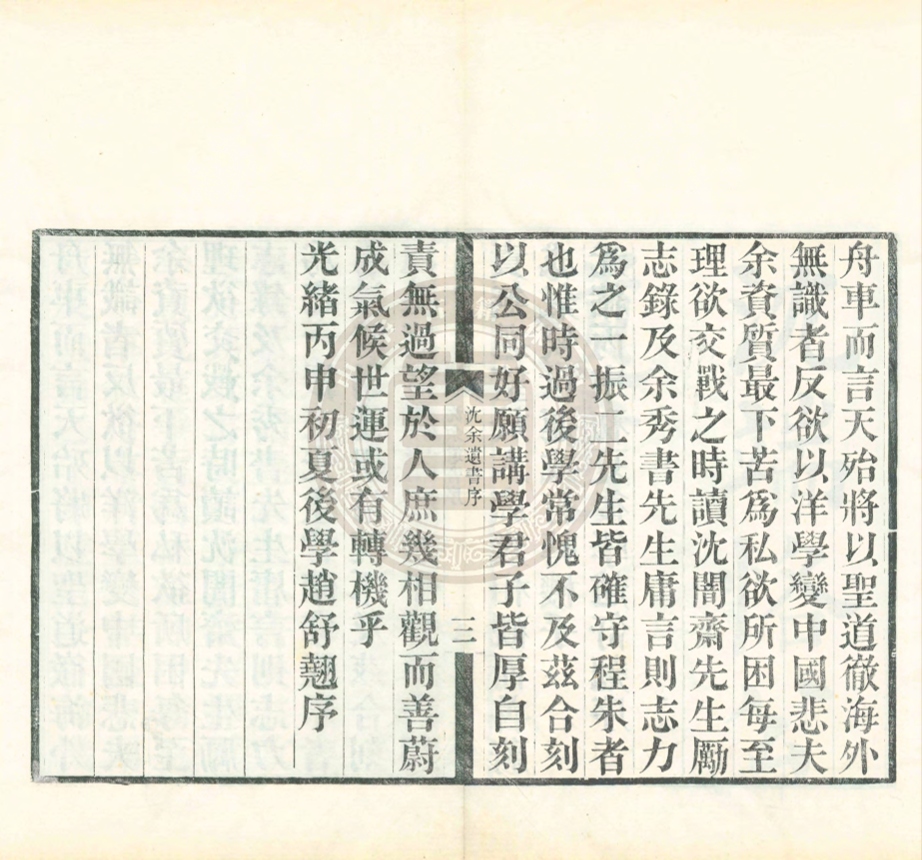 舟車而言天殆將以聖道徹海外
無識者反欲以洋學變中國悲夫
余資質最下苦爲私欲所困每至
理欲交戰之時讀沈闇齋先生勵
志錄及余秀書先生庸言則志力
爲之一振二先生皆確守程朱者
也惟時過後學常愧不及茲合刻
以公同好願講學君子皆厚自刻
沈余遺書序
三
責無過望於人庶幾相觀而善蔚
成氣候世運或有轉機乎
光緒丙申初夏後學趙舒翹序